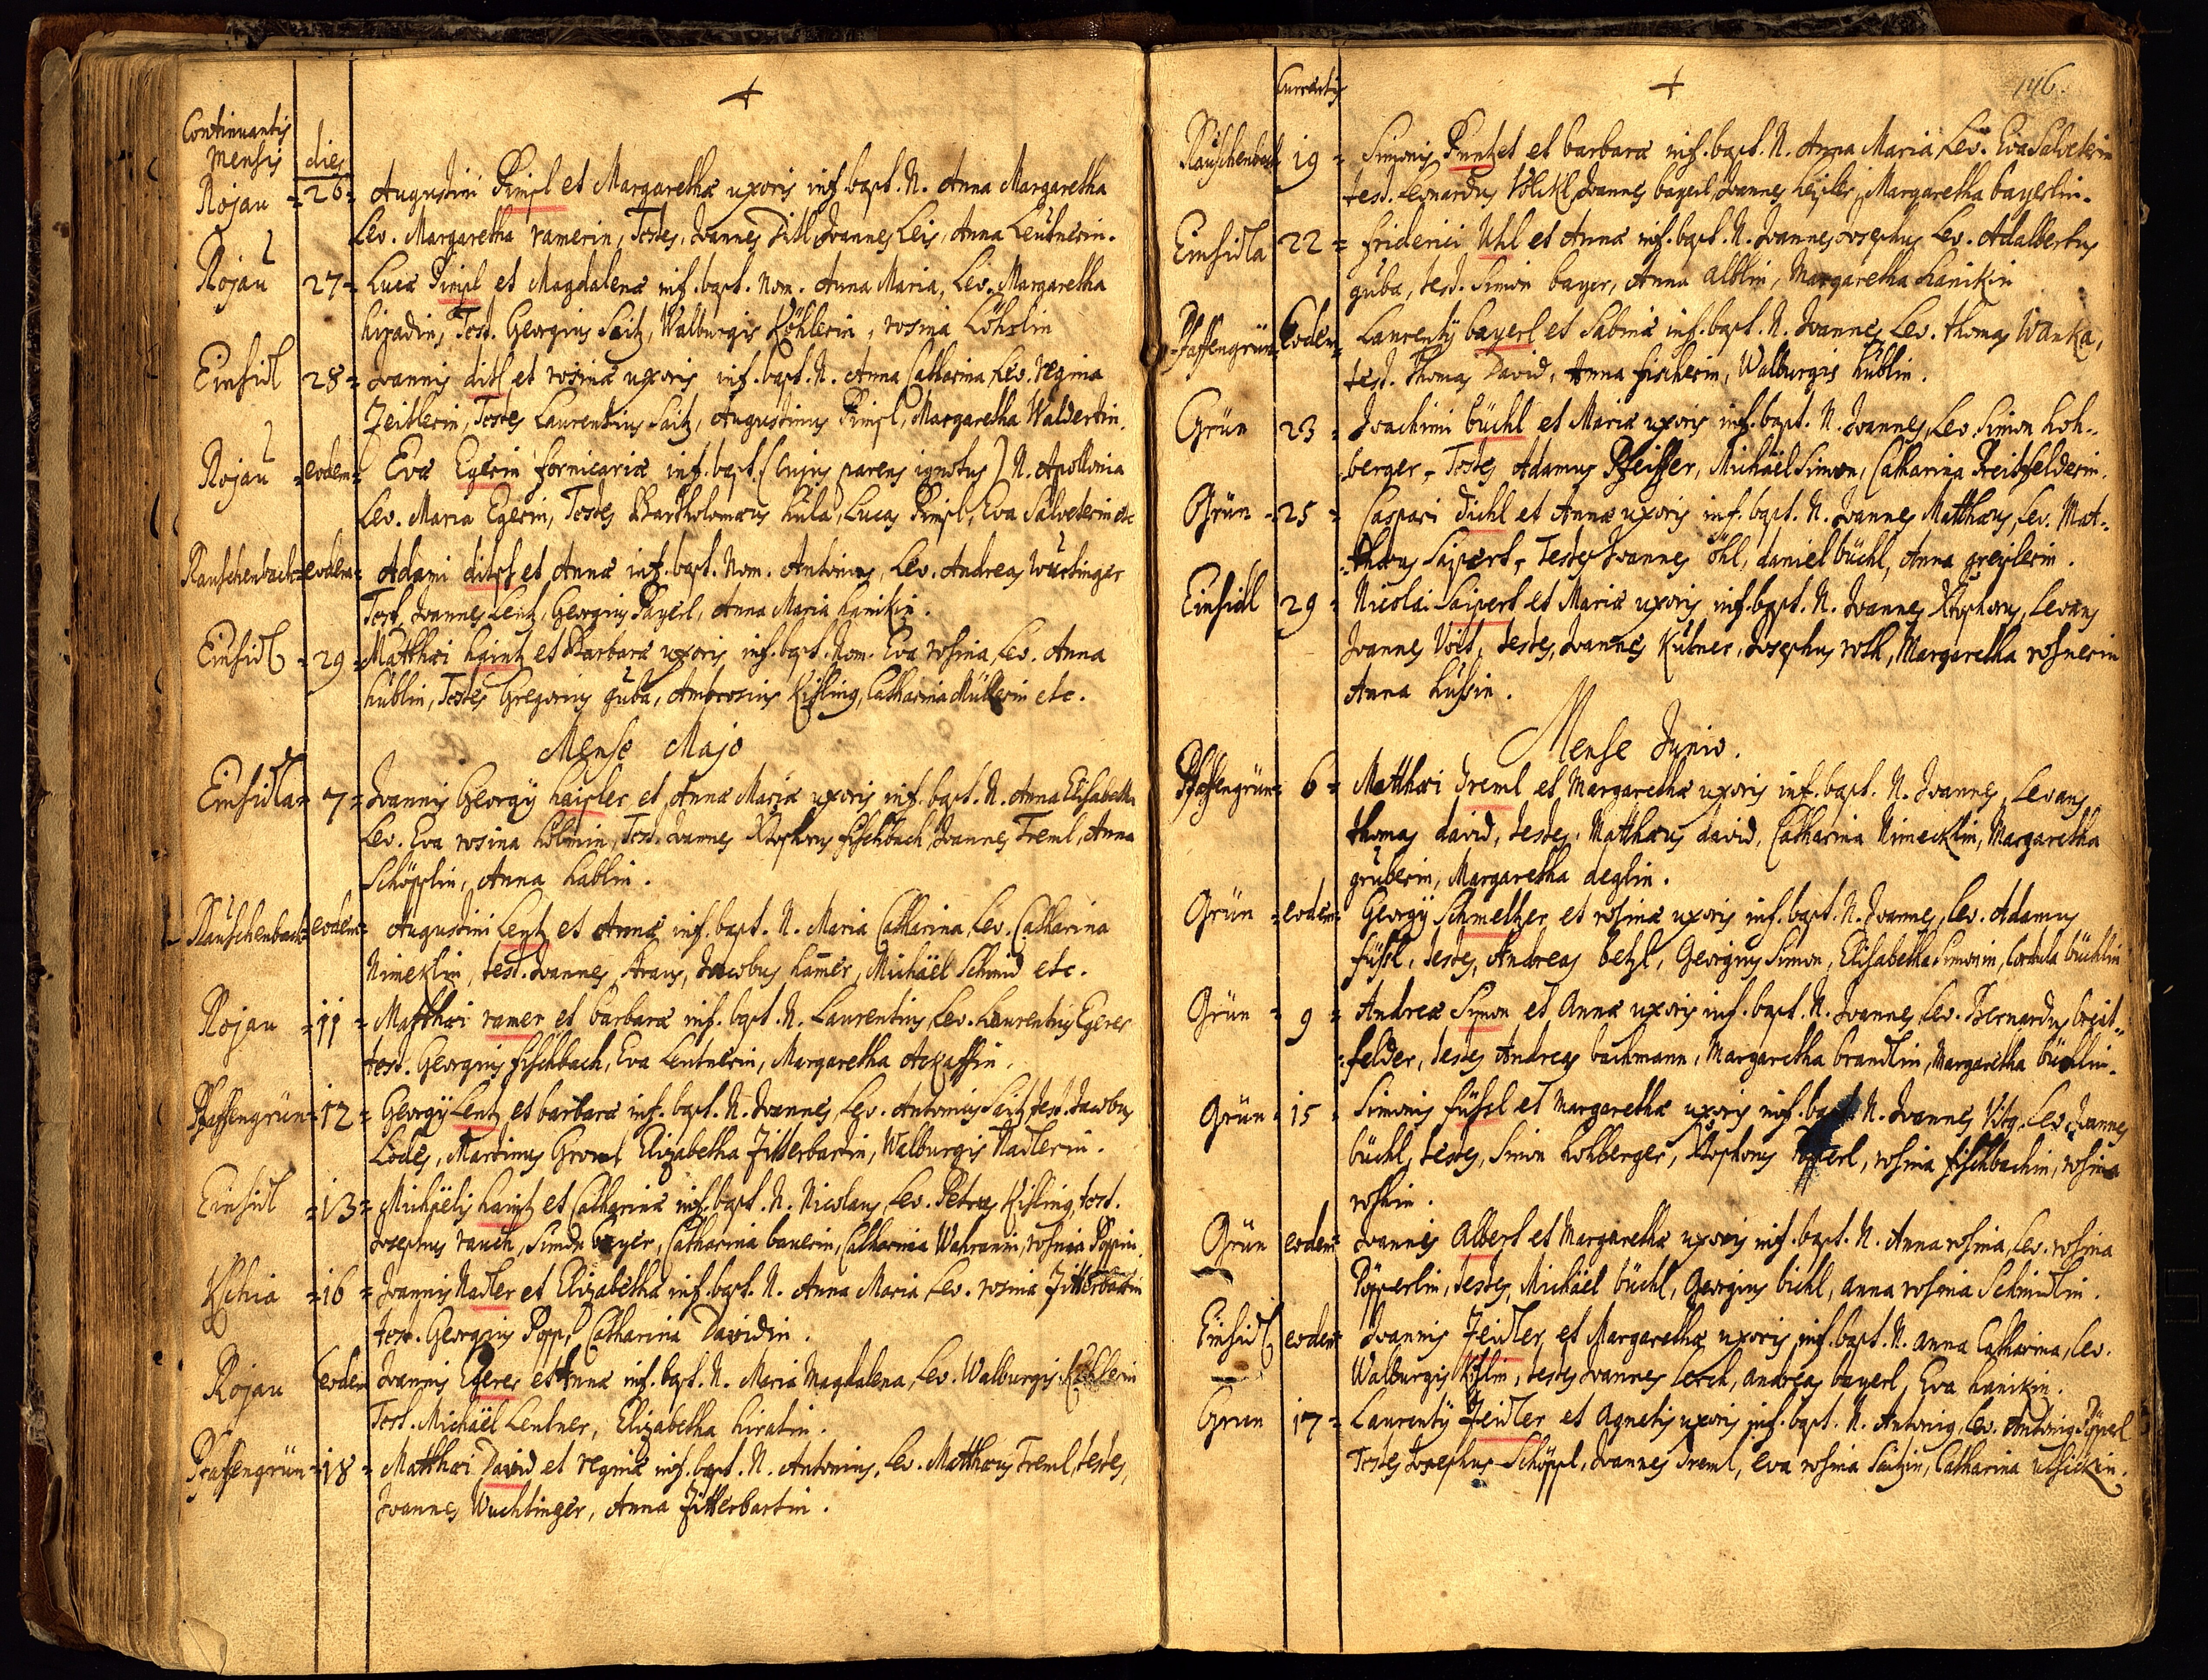 Continuantis
mensis dies
Rojau =26= Augustini Pimpl et Margarethæ uxoris inf. bapt. N. Anna Margaretha
Lev. Margaretha ramerin, Testes, Joannes Ditl, Joannes Leis, Anna Leütnerin.
Rojau 27= Lucæ Pimpl et Magdalenæ inf. bapt. Nom. Anna Maria, Lev. Margaretha
hiradin, Test. Georgius Saitz, Walburgis Köhlerin, rosina
Einsidl 28= Joannis ditl et rosinæ uxoris inf. bapt. N. Anna Catharina, Lev. regina
Zeitlerin, Testes Laurentius Saitz, Augustinus Pimpl, Margaretha
Rojau =eodem= Evæ Egerin fornicariæ inf. bapt. (cujus parens ignotus) N. Apollonia
Lev. Maria Egerin, Testes Bartholomæus hüla, Lucas Pimpl, Eva Salveterin etc
Rauschenbach=eodem= Adami et Annæ inf. bapt. Nom. Antonius, Lev. Andreas
Test. Joannes Lentz, Georgius Payerl, Anna Maria hanikin.
Einsidl =29= Matthæi haintz et Barbaræ uxoris inf. bapt. Nom. Eva rosina, Lev. Anna
hüblin, Testes Gregorius guba, Ambrosius Kisling, Catharina Müllerin etc.
Mense Majo
Einsidla= 7= Joannis Georgij haisler et Annæ Mariæ uxoris inf. bapt. N. Anna Elisabeth
Lev. Eva rosina Test. Joannes Xtophorus fischbach, Joannes Treml, Anna
Schöpplin, Anna hablin.
Rauschenbach=eodem= Augustini Lentz et Annæ inf. bapt. N. Maria Catharina, Lev. Catharina
Nimeklin, test. Joannes Jacobus hamer, Michäel Schmid etc.
Rojau =11= Matthæi ramer et barbaræ inf. bapt. N. Laurentius, Lev. Laurentius Egerer
test. Georgius fischbach, Eva Lentnerin, Margaretha
Pfaffengrün=12= Georgij Lentz et barbaræ inf. bapt. N. Joannes, Lev. Antonius Saitz, test. Jacobus
Lödes, Martinus Elizabetha Zitterbartin, Walburgis Nadlerin.
Einsidl =13= Michäelis haintz et Catharinæ inf. bapt. N. Nicolaus, Lev. Petrus Kisling, test.
Josephus rauch, Simon bayer, Catharina bauerin, Catharina rosina Poppin.
=16= Joannis Nadler et Elizabethæ inf. bapt. N. Anna Maria, Lev. rosina Zitterbartin
test. Georgius Popp, Catharina Davidin.
Rojau eodem Joannis Egerer et Annæ inf. bapt. N. Maria Magdalena, Lev. Walburgis Köhlerin
Test. Michäel Lentner, Elizabetha hiratin.
Pfaffengrün=18= Matthæi David et reginæ inf. bapt. N. Antonius, Lev. Matthæus Treml, testes,
Joannes Wuchtinger, Anna Zitterbartin.
Currentis 146.
Rauschenbach 19= Simonis Puntzet et barbaræ inf. bapt. N. Anna Maria, Lev. Eva Salveterin
test. Leonardus Völckl, Joannes bayerl, Joannes heisler, Margaretha bayerlin.
Einsidla 22= friderici Uhl et Annæ inf. bapt. N. Joannes Josephus Lev. Adalbertus
guba, test. Simon bayer, Anna alblin, Margaretha hanikin
Pfaffengrün Eodem Laurentij bayerl et Sabinæ inf. bapt. N. Joannes, Lev. thomas Wanka,
test. Thomas David, Anna fischerin, Walburgis hüblin.
Grün 23= Joachimi büchl et Mariæ uxoris inf. bapt. N. Joannes, Lev. Simon hoh-
berger, Testes Adamus Pfeiffer, Michäel Simon, Catharina Preitfelderin.
Grün =25= Caspari Dichl et Annæ uxoris inf. bapt. N. Joannes Matthæus, Lev. Mat-
thæus Saipert, Testes Joannes öhl, daniel büchl, Anna greislerin.
Einsidl 29= Nicolai Saipert et Mariæ uxoris inf. bapt. N. Joannes Xtophorus, Levans
Joannes Voit, testes, Joannes Kübner, Josephus roth, Margaretha rosnerin
Anna
Mense Junio.
Pfaffengrün= 6= Matthæi Treml et Margarethæ uxoris inf. bapt. N. Joannes, Levans
thomas david, testes, Matthæus david, Catharina Nimecklin, Margaretha
gruberin, Margaretha deglin.
Grün =eodem= Georgij Schmeltzer et rosinæ uxoris inf. bapt. N. Joannes, lev. Adamus
füssl, testes, Andreas betzl, Georgius Simon, Elisabetha Simonin, Cordula büchlin
Grün = 9= Andreæ Symon et Annæ uxoris inf. bapt. N. Joannes, Lev. Bernardus breit-
felder, testes Andreas bachmann, Margaretha brandlin, Margaretha büchlin.
Grün =15= Simonis füssl et Margarethæ uxoris inf. bapt. N. Joannes Vitus, Lev. Joannes
büchl, testes, Simon hohberger, Xtophorus rosina fischbachin, rosina
rothin.
Grün eodem= Joannis Albert et Margarethæ uxoris inf. bapt. N. Anna rosina, Lev. rosina
Pöpperlin, testes, Michäel büchl, Georgius bichl, anna rosina Schmidlin.
Einsidl eodem= Joannis Zeidler et Margarethæ uxoris inf. bapt. N. anna Catharina, lev.
Walburgis testes Joannes Lerch, andreas bayerl, Eva hanikin.
Grün 17= Laurentij Zeidler et Agnetis uxoris inf. bapt. N. Antonius, lev. Antonius Pöpperl
Testes Josephus Schöppl, Joannes Treml, eva rosina Saitzin, Catharina